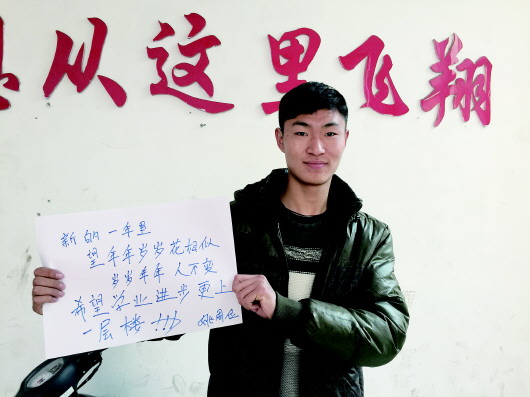 从这里飞翔
新的一年里
望年年岁岁花相似
岁岁年年人不变
希望学业进步更上
一层楼!!!